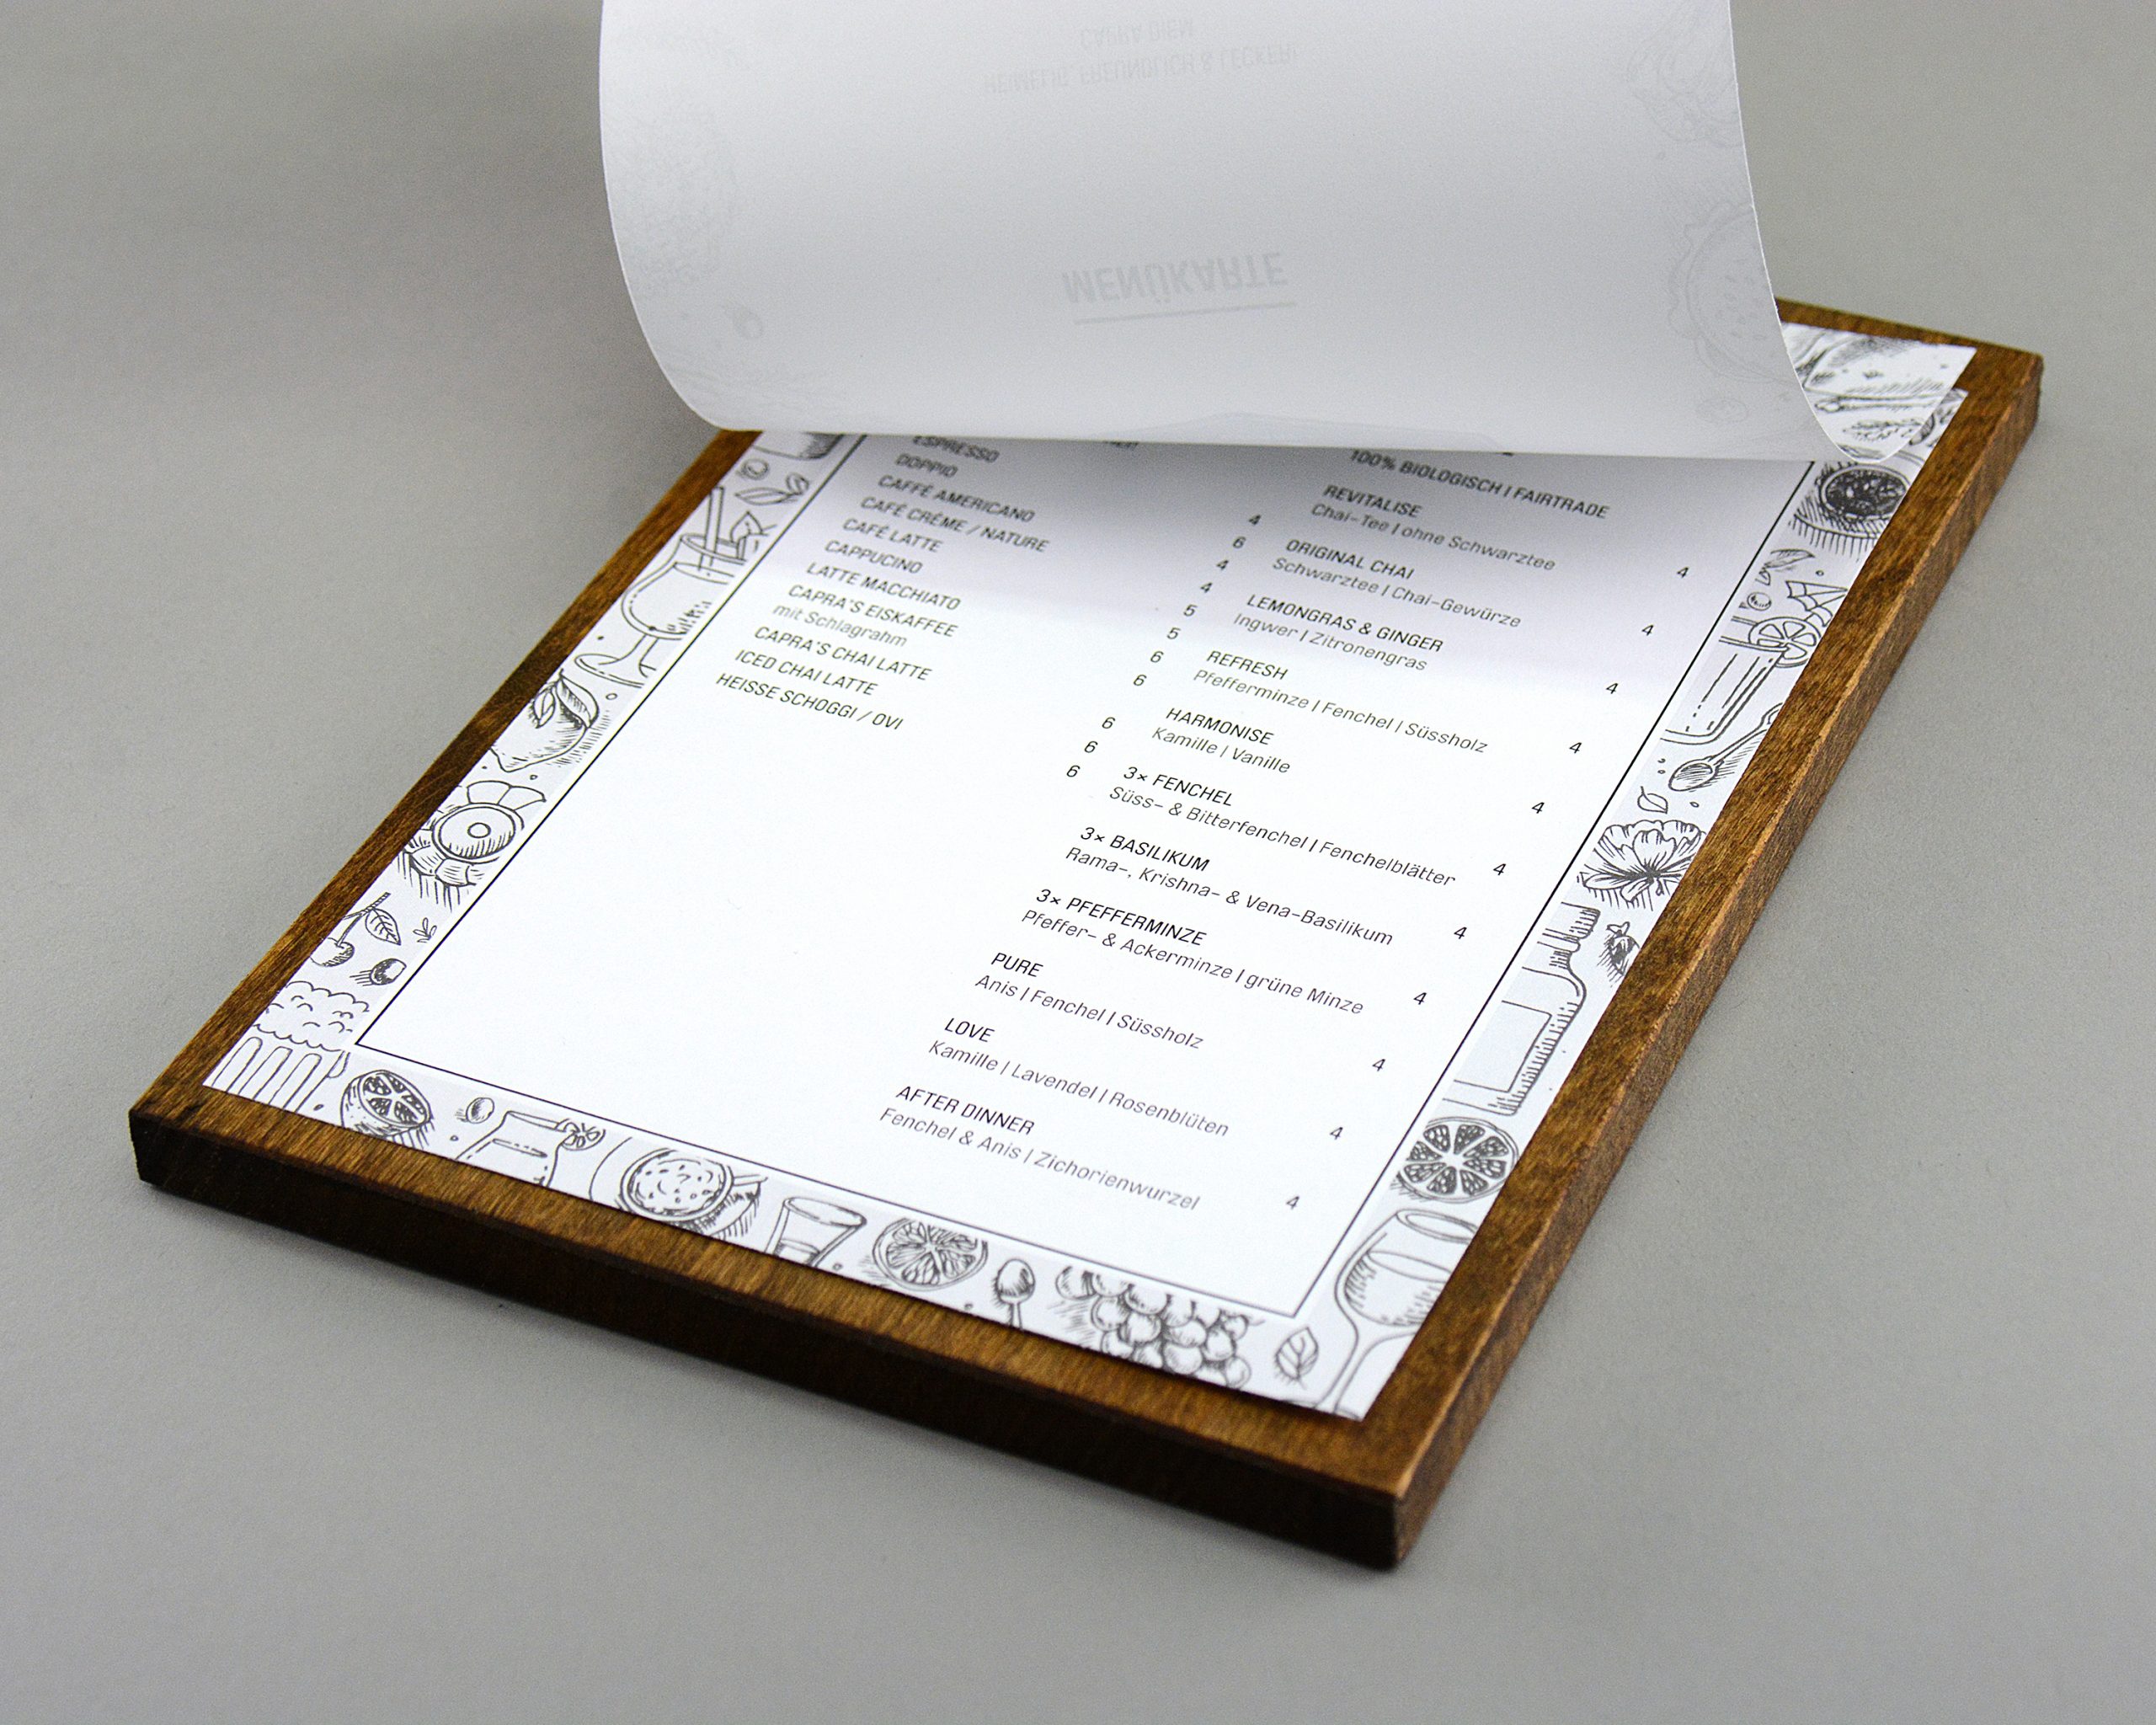 CAPRA DIEM
HEIMELIG, FREUNDLICH & LECKER!
MENÜKARTE
ESPRESSO 4
DOPPIO 6
CAFFÉ AMERICANO 4
CAFÉ CRÈME / NATURE 4
CAFÉ LATTE 5
CAPPUCINO 5
LATTE MACCHIATO 6
CAPRA'S EISKAFFEE 6
mit Schlagrahm
CAPRA'S CHAI LATTE 6
ICED CHAI LATTE 6
HEISSE SCHOGGI / OVI 6
100% BIOLOGISCH | FAIRTRADE
REVITALISE
Chai-Tee | ohne Schwarztee 4
ORIGINAL CHAI
Schwarztee | Chai-Gewürze 4
LEMONGRAS & GINGER
Ingwer | Zitronengras 4
REFRESH
Pfefferminze | Fenchel | Süssholz 4
HARMONISE
Kamille | Vanille 4
3× FENCHEL
Süss- & Bitterfenchel | Fenchelblätter 4
3× BASILIKUM
Rama-, Krishna- & Vena-Basilikum 4
3× PFEFFERMINZE
Pfeffer- & Ackerminze | grüne Minze 4
PURE
Anis | Fenchel | Süssholz 4
LOVE
Kamille | Lavendel | Rosenblüten 4
AFTER DINNER
Fenchel & Anis | Zichorienwurzel 4